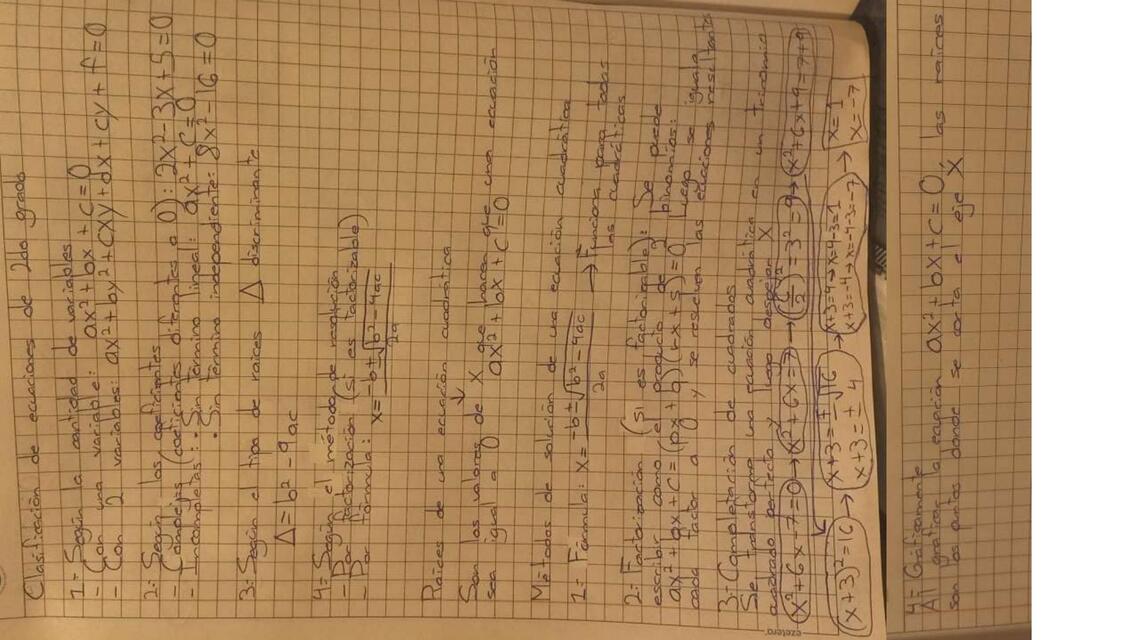 Clasificación de ecuaciones de 2do grado
1= Según la cantidad de variables
- Con una variable: ax²+bx+c=0
- Con 2 variables: ax²+by²+cxy+dx+cy+f=0
2= Según los coeficientes
- Complejas (coeficientes diferentes a 0): 2x²-3x+5=0
- Incompletas: • Sin término lineal: ax²+c=0
• Sin término independiente: 8x²-16=0
3= Según el tipo de raíces Δ discriminante
Δ=b²-4ac
4= Según el método de resolución
- Por factorización (si es factorizable)
- Por fórmula: x=-b±√b²-4ac
2a
Raíces de una ecuación cuadrática
Son los valores de x que hacen que una ecuación
sea igual a 0 ax²+bx+c=0
Métodos de solución de una ecuación cuadrática
1= Fórmula: x=-b±√b²-4ac → Funciona para todas
2a las cuadráticas
2= Factorización (si es factorizable): Se puede
escribir como el producto de 2 binomios:
ax²+bx+c=(px+q)(rx+s)=0 Luego se iguala
cada factor a 0 y se resuelven las ecuaciones resultantes
3= Completación de cuadrados
Se transforma una ecuación cuadrática en un trinomio
cuadrado perfecto y luego despejar X
x²+6x-7=0 → x²+6x=7 → (6/2)²=3²=9 → x²+6x+9=7+9
(x+3)²=16 → x+3=±√16 → x+3=4→x=4-3=1 → x=1
x+3=±4 x+3=-4→x=-4-3=-7 x=-7
ezetera
4= Gráficamente
Al graficar la ecuación ax²+bx+c=0, las raíces
son los puntos donde se corta el eje X